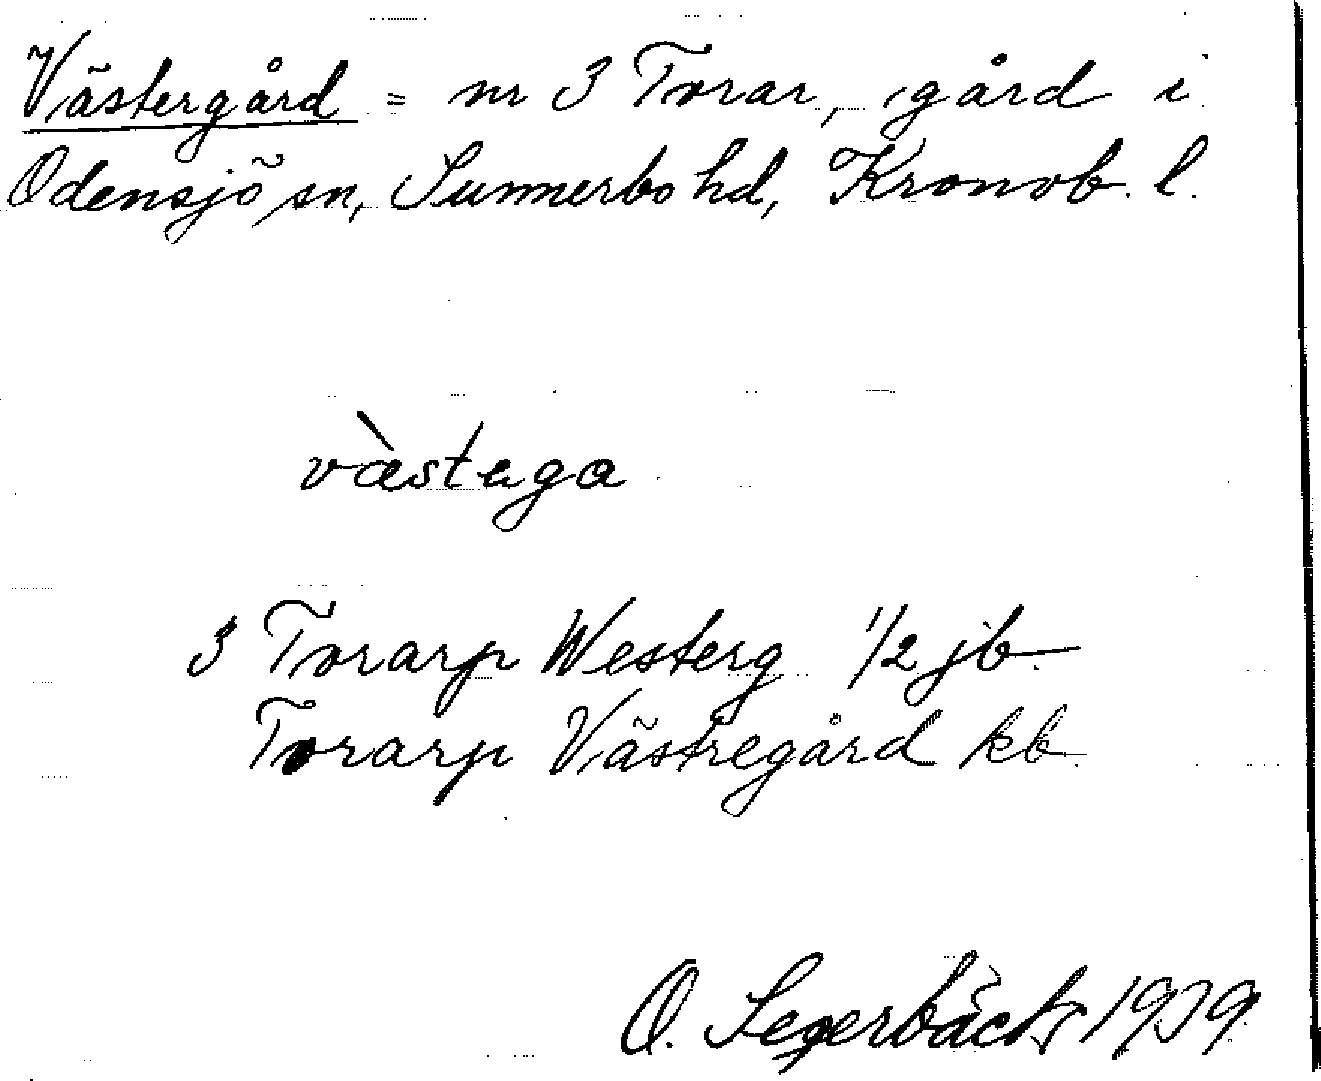 Västergård = nr 3 Torar, gård i
Odensjö sn, Sunnerbo hd, Kronob. l.
vàstega
3 Torarp Westerg 1/2 jb.
Torarp Västregård kb.
O. Segerbäck 1939